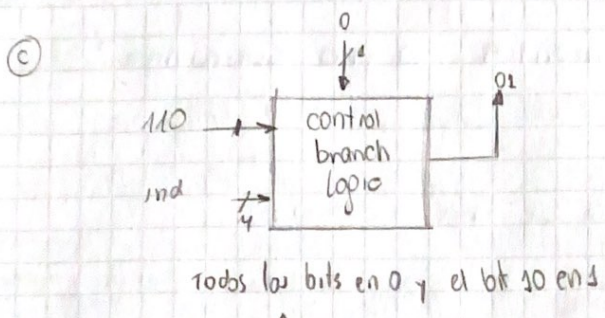 C
0
1
01
110
control
branch
logic
ind
4
Todos los bits en 0 y el bit 10 en 1